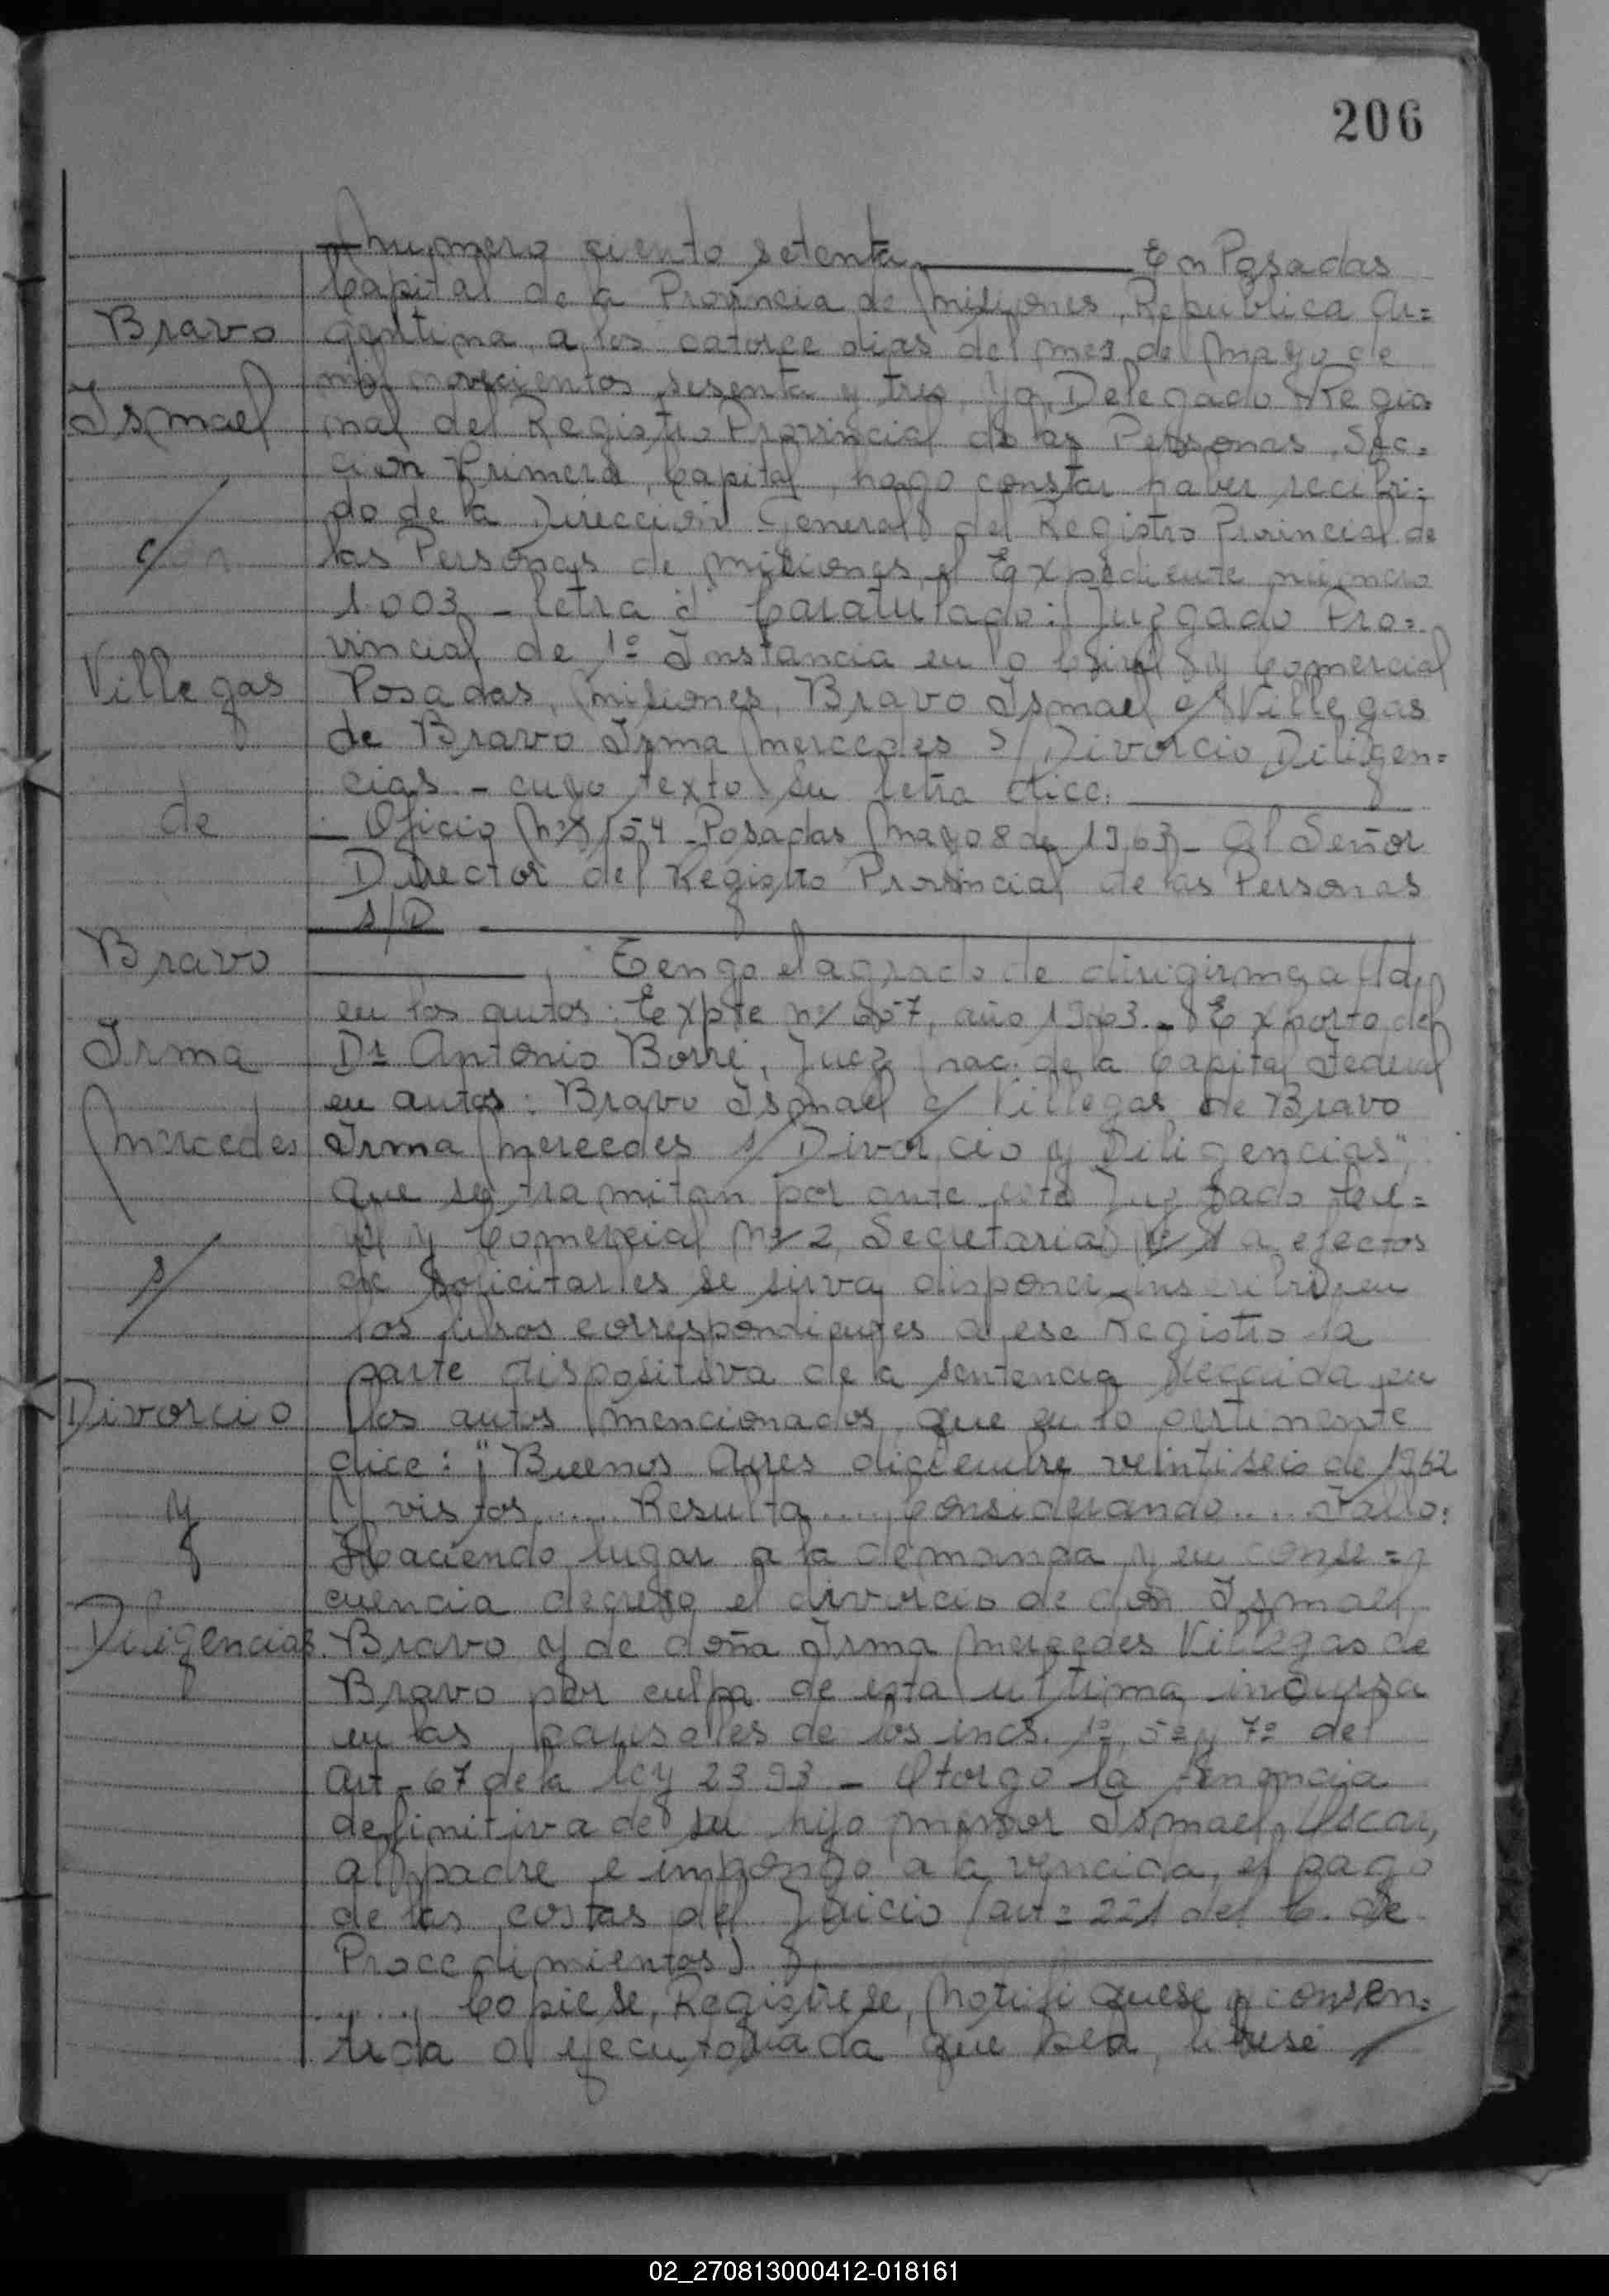 206
Número ciento setenta. En Posadas
Capital de la Provincia de Misiones, República Ar=
Bravo
gentina, a los catorce dias del mes de Mayo de
mil novecientos sesenta y tres, Yo, Delegado Regio
Ismael
nal del Registro Provincial de las Personas, Sec=
ción Primera, Capital, hago constar haber recibi=
do de la Dirección General del Registro Provincial de
c/
las Personas de Misiones, el Expediente número
1.003 - letra Caratulado: Juzgado Pro=
vincial de 1º Instancia en lo Civil y Comercial
Villegas
Posadas, Misiones, Bravo Ismael c/ Villegas
de Bravo Irma Mercedes s/ Divorcio Diligen=
cias - cuyo texto su letra dice:
de
Oficio Nº Posadas Mayo 8 de 1963 - Al Señor
Director del Registro Provincial de las Personas
S/D
Bravo
Tengo el agrado de dirigirme a Ud.
en los autos: Expte Nº año 1963 - Exhorto del
Irma
Dr Antonio Borré, Juez Nac. de la Capital Federal
en autos: Bravo Ismael c/ Villegas de Bravo
Mercedes
Irma Mercedes s/ Divorcio y Diligencias",
que se tramitan por ante este Juzgado Ci=
vil y Comercial Nº 2, Secretaria Nº 1 a efectos
s/
de solicitarles se sirva disponer inscribir en
los libros correspondientes a ese Registro la
parte dispositiva de la sentencia recaida en
Divorcio
los autos mencionados, que en lo pertinente
dice: "Buenos Aires diciembre veintiseis de 1962
y
Y vistos...... Resulta..... Considerando..... Fallo:
Haciendo lugar a la demanda y en conse=
cuencia decreto el divorcio de don Ismael
Diligencias.
Bravo y de doña Irma Mercedes Villegas de
Bravo por culpa de esta ultima incursa
en las causales de los incs. 1º, 5º y 7º del
Art - 67 de la ley 2393 - Otorgo la tenencia
definitiva de su hijo menor Ismael Oscar,
al padre e impongo a la vencida, el pago
de las costas del Juicio (art = 221 del C. de
Procedimientos)
.... Copiese, Registrese, Notifiquese y consen=
tida o ejecutoriada que sea, librese
02_270813000412-018161